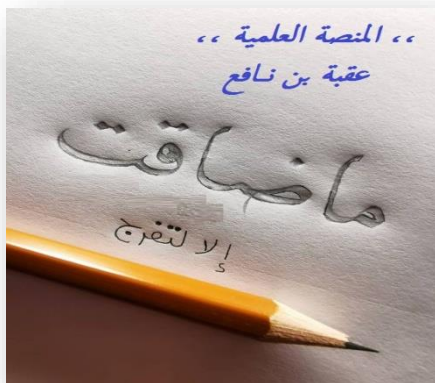 ،، المنصة العلمية ،،
عقبة بن نافع
ما ضاقت
إلا لتفرج